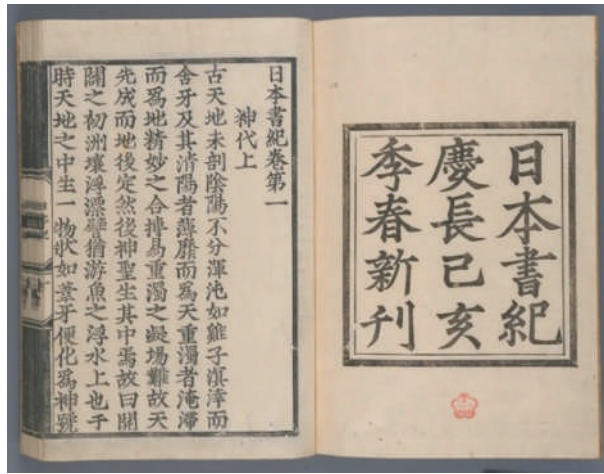 日本書紀
慶長己亥
季春新刊
日本書紀巻第一
神代上
古天地未剖陰陽不分渾沌如雞子溟涬而
含牙及其清陽者薄靡而爲天重濁者淹滯
而爲地精妙之合摶易重濁之凝場難故天
先成而地後定然後神聖生其中焉故曰開
闢之初洲壤浮漂譬猶游魚之浮水上也于
時天地之中生一物狀如葦牙便化爲神號